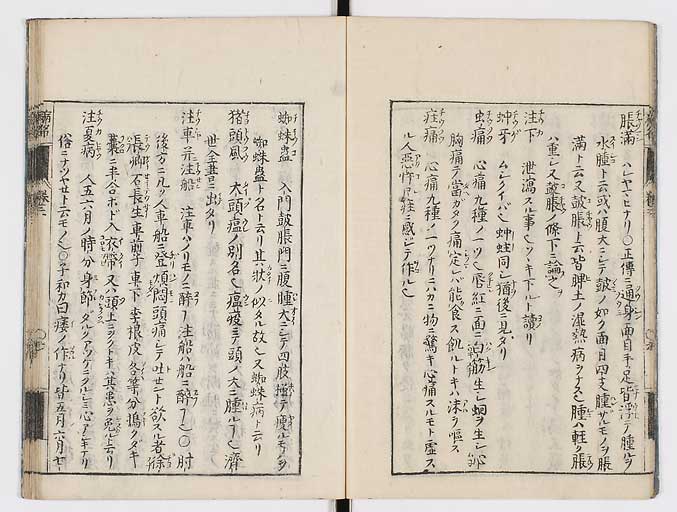 脹満 ハレヤマヒナリ〇正傳ニ通身面目手足皆浮テ腫ルヲ
水腫ト云或ハ腹大ニシテ鼓ノ如ク面目四支腫ザルモノヲ脹
満ト云又鼓脹ト云皆脾土ノ湿熱病ヲナス腫ハ軽ク脹
ハ重シ又鼓脹ノ條下ニ論之
注下 泄瀉スル事也ツキ下ルト讀リ
蚛牙 ムシクイバ也蚛蛀同シ猶後ニ見タリ
虫痛 心痛九種ノ一ツ也唇紅ニ面ニ白筋ヲ生シ蛔ヲ生シ
胸痛テ當カタク痛定レバ能食ス飢ルトキハ沫ヲ嘔ス
疰痛 心痛九種ノ一ツナリニハカニ物ニ驚キ心痛スルモト虚ス
ル人悪忤ノ疰ニ感シテ作ル也
蜘蛛蠱 入門鼓脹門ニ腹腫大ニシテ四肢極テ瘦ルモノヲ
蜘蛛蠱ト名ト云リ其状ノ似タル故也又蜘蛛病ト云リ
猪頭風 大頭瘟ノ別名也瘟疫ニテ頭ノ大ニ腫ル丁也濟
世全書ニ出タリ
注車并注船 注車ハノリモノニ酔フ注船ハ船ニ酔フ也〇肘
後方ニ凡ソ人車船ニ登煩悶頭痛シテ吐セント欲スル者徐
長卿石長生車前子車下李根皮各等分搗クダキ
囊ニ半合ホド入衣帶又ハ頭上ニヲクトキハ其患ヲ免ルト云リ
注夏病 人五六月ノ時分身節ダルクアツケニクルシミ心アシキナリ
俗ニナツヤセト云モノ也〇子和カ曰痿ノ作ナリ皆五月六月七